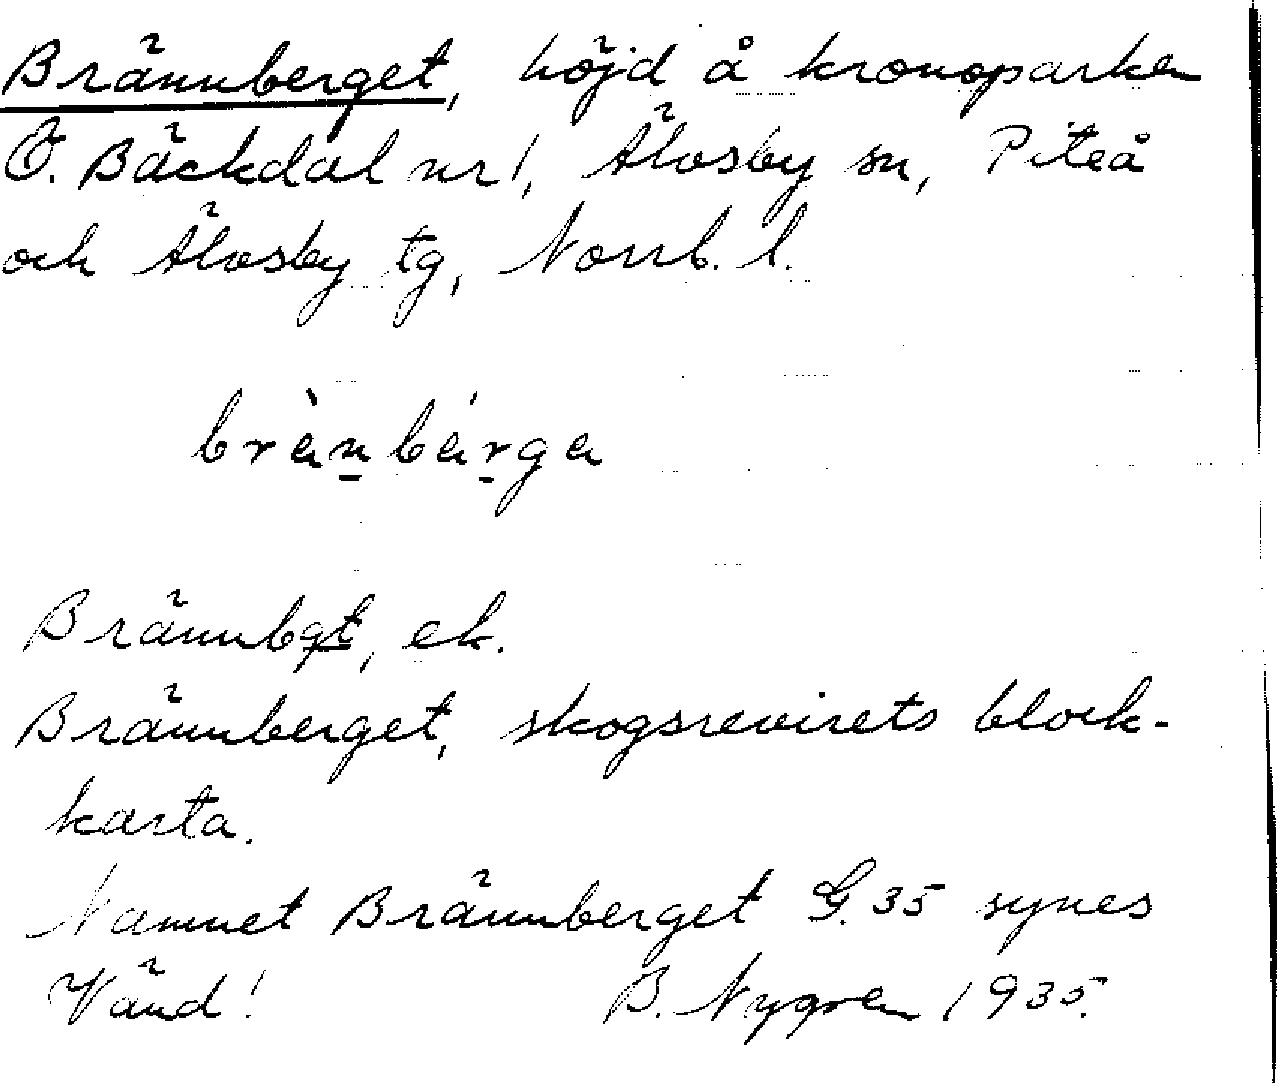 Brännberget, höjd å kronoparken
Ö. Bäckdal nr 1, Älvsby sn, Piteå
och Älvsby tg, Norrb. l.
brἂn̲bár̲ga
Brännbgt, ek.
Brännberget, skogsrevirets block-
karta.
Namnet Brännberget G. 35 synes
Vänd! B. Nygren 1935.